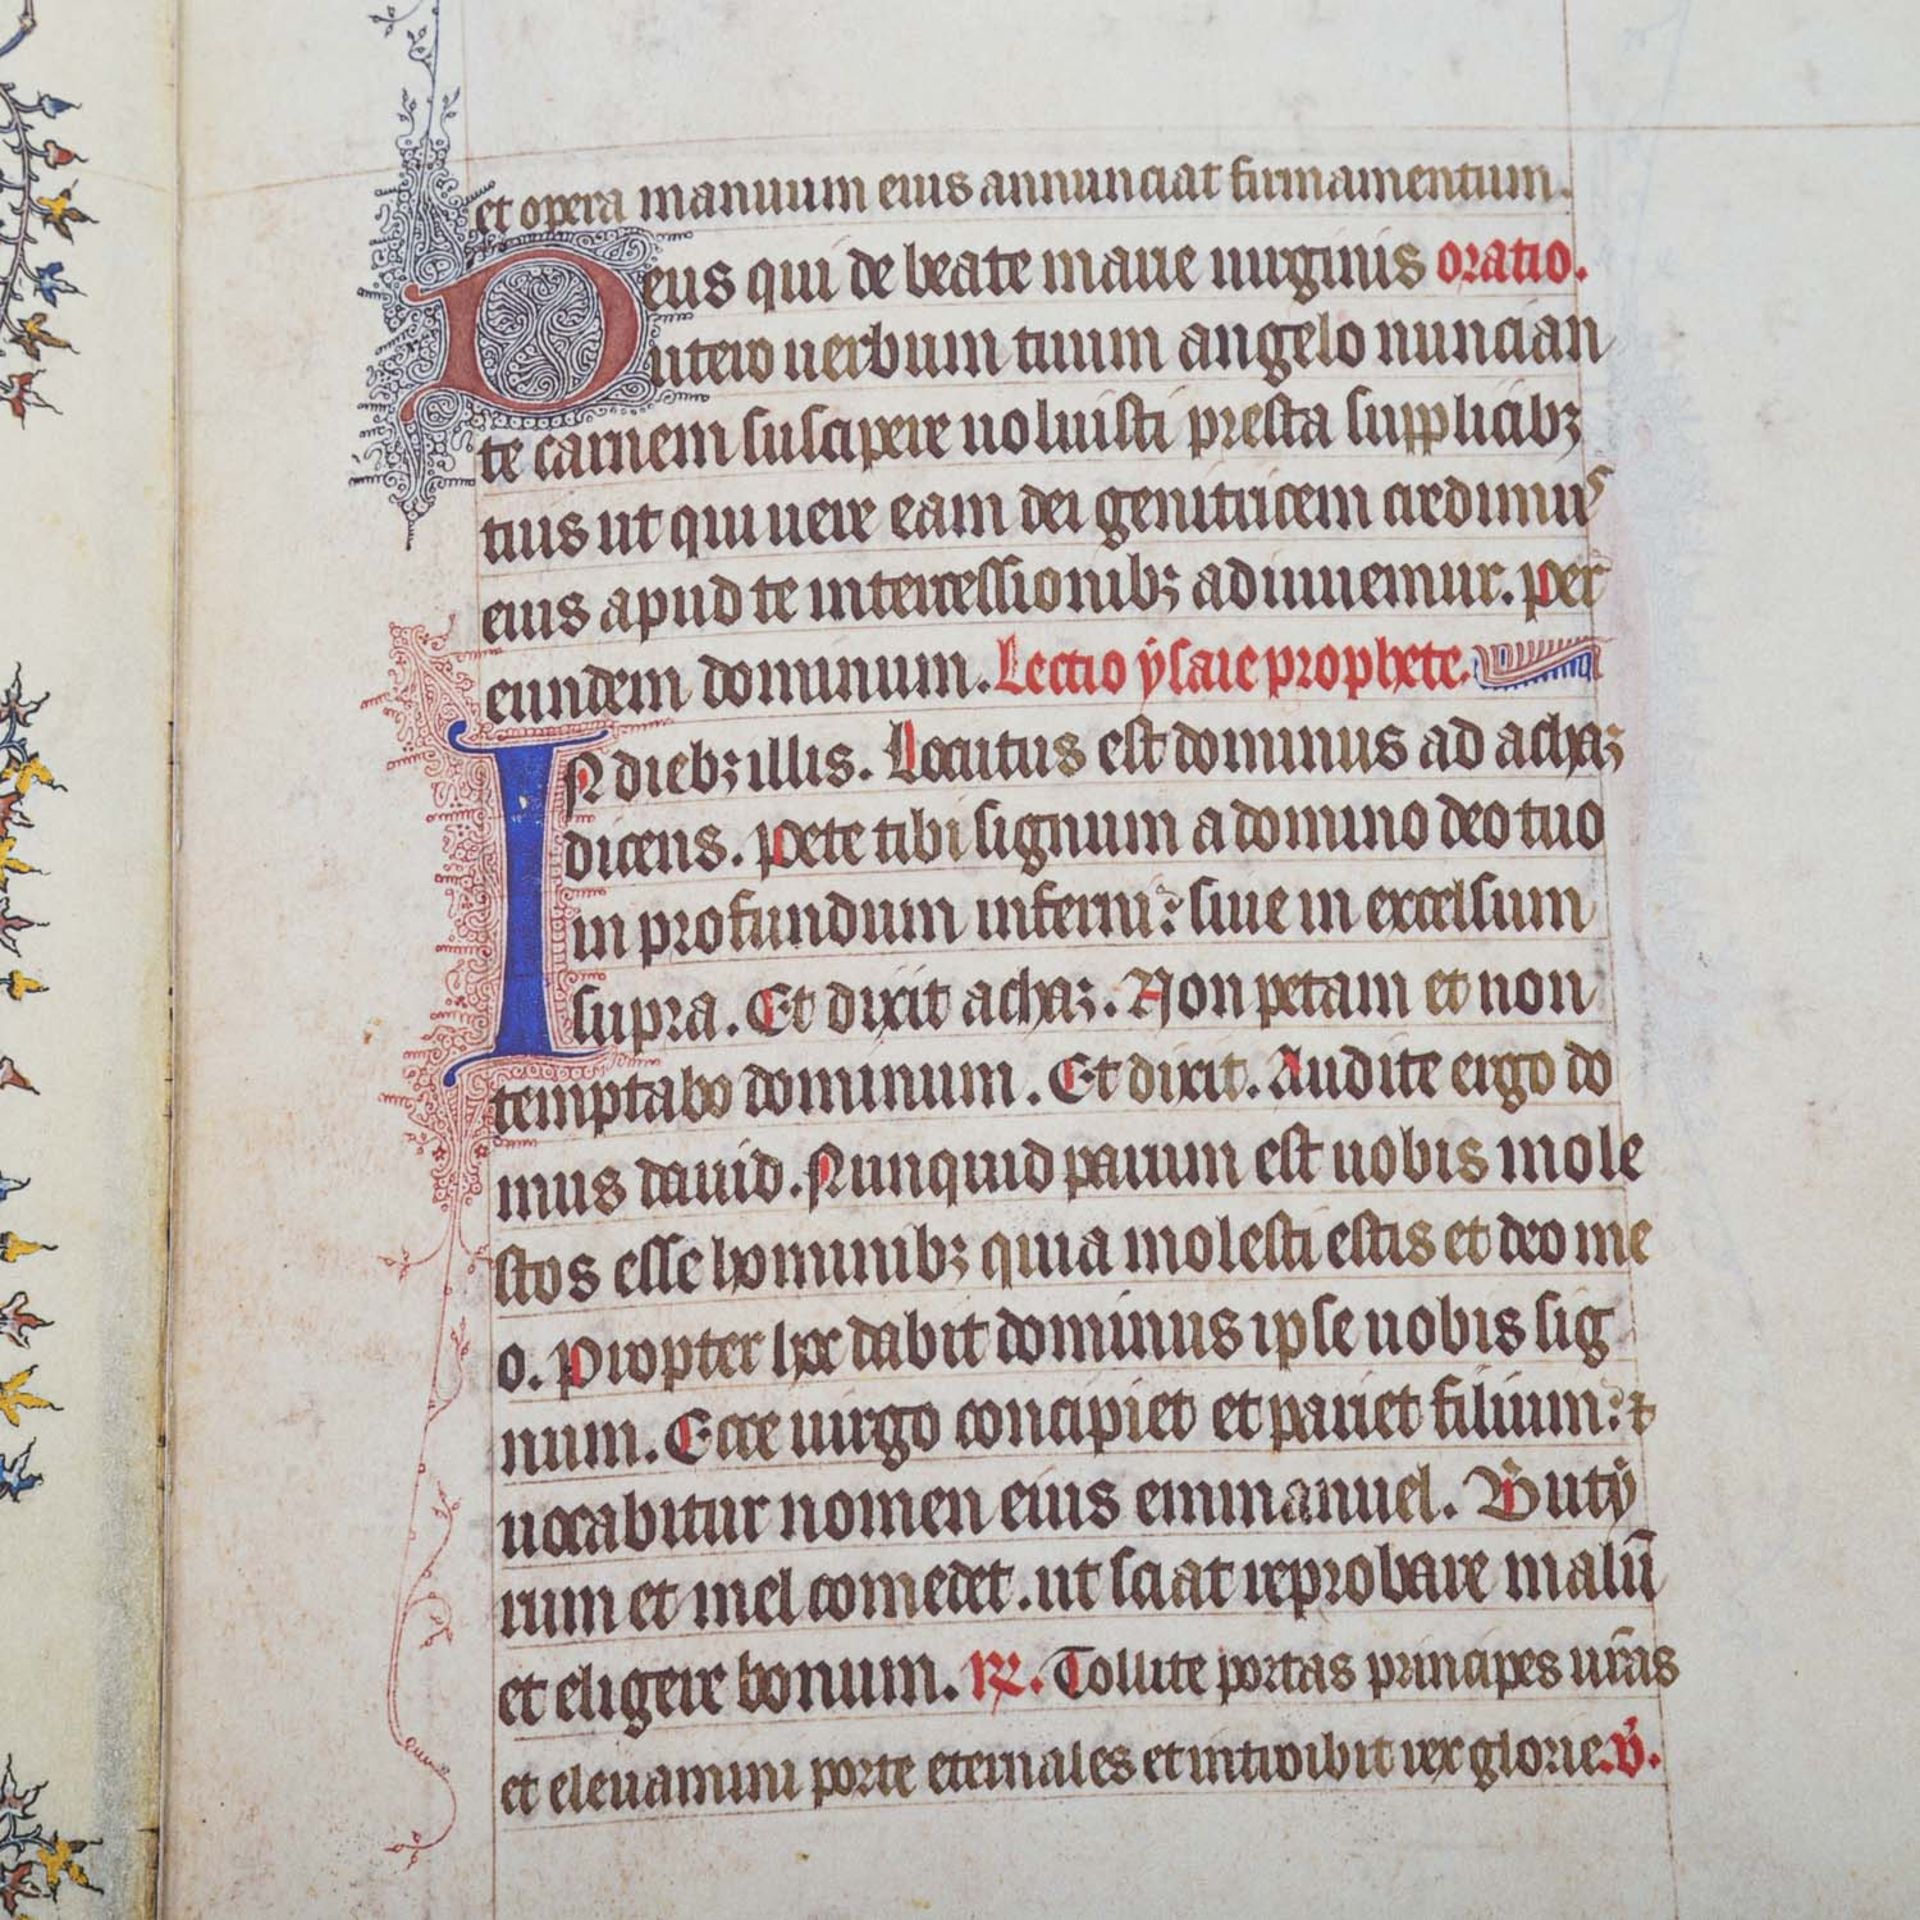 et opera manuum eius annunciat firmamentum.
Deus qui de beate marie uirginis oratio.
utero uerbum tuum angelo nuncian
te carnem suscipere uoluisti presta supplicibꝫ
tuis ut qui uere eam dei genitricem credimus
eius apud te intercessionibꝫ adiuuemur. per
eundem dominum. Lectio ẏsaie prophete.
IN diebꝫ illis. Locutus est dominus ad achaz
dicens. Pete tibi signum a domino deo tuo
in profundum inferni: siue in excelsum
supra. Et dixit achaz. Non petam et non
temptabo dominum. Et dixit. Audite ergo do
mus dauid. Nunquid paruum est uobis mole
stos esse hominibꝫ quia molesti estis et deo me
o. Propter hoc dabit dominus ipse uobis sig
num. Ecce uirgo concipiet et pariet filium: ⁊
uocabitur nomen eius emmanuel. Butẏ
rum et mel comedet. ut sciat reprobare malū
et eligere bonum. ℟. Tollite portas principes ur̄as
et eleuamini porte eternales et introibit rex glorie. v̇.